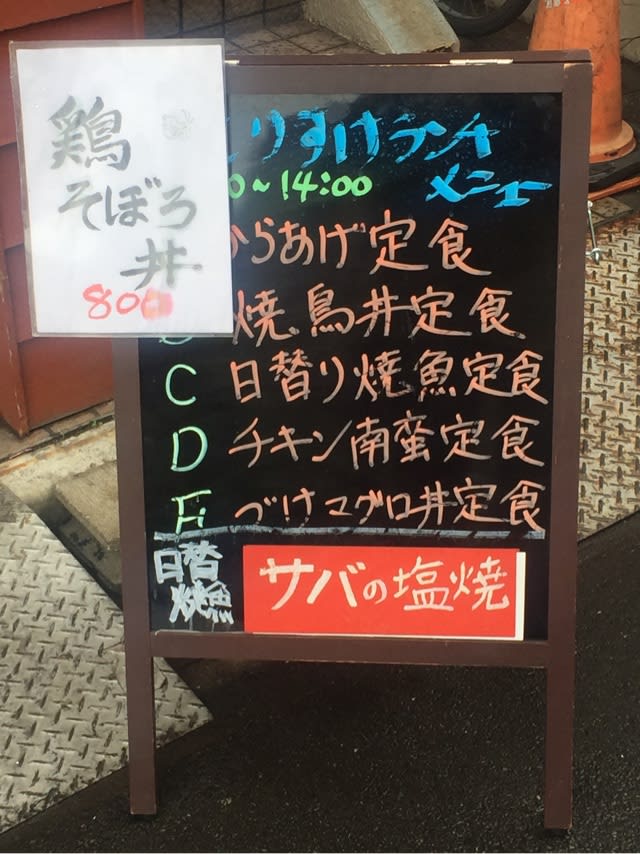 鶏
そぼろ
丼
800
りすけランチ
メニュー
0~14:00
からあげ定食
焼鳥丼定食
C 日替り焼魚定食
D チキン南蛮定食
E づけマグロ丼定食
日替
焼魚
サバの塩焼